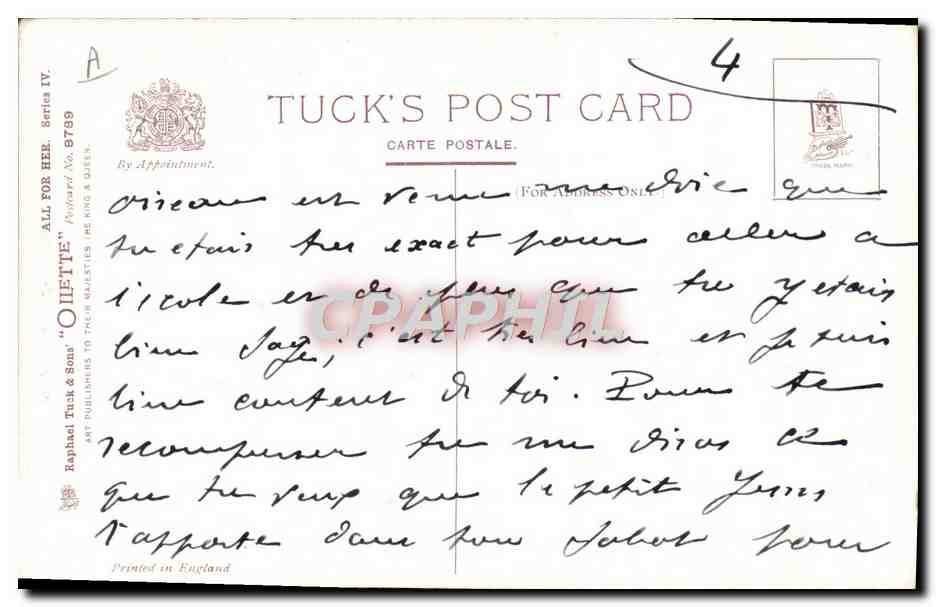 A
4
TUCK'S POST CARD
CARTE POSTALE.
By Appointment.
(FOR ADDRESS ONLY.)
TRADE MARK
ALL FOR HER. Series IV.
Raphael Tuck & Sons' "OILETTE" Postcard No. 8789
ART PUBLISHERS TO THEIR MAJESTIES THE KING & QUEEN.
oiseau est venu me dire que
tu etais tres exact pour aller a
l'ecole et de plus que tu y etais
bien sage; c'est tres bien et je suis
bien content de toi. Pour te
recompenser tu me diras ce
que tu veux que le petit Jesus
t'apporte dans ton sabot pour
Printed in England
CPAPHIL